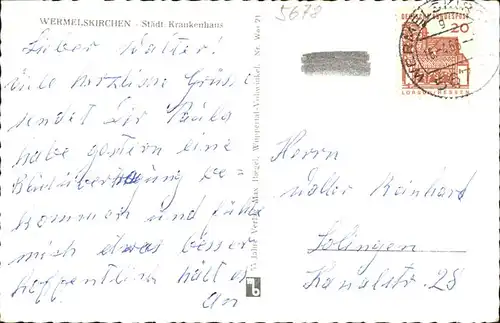 WERMELSKIRCHEN - Städt. Krankenhaus
5678
Lieber Walter!
viele herzliche Grüsse
sendet Dir
habe gestern eine
Blutübertragung be
kommen und fühle
mich etwas besser
hoffentlich hält es
An
Max Biegel, Wuppertal-Vohwinkel. Nr. Wer 21
DEUTSCHE BUNDESPOST
20
LORSCH/HESSEN
WERMELSKIRCHEN
Herrn
Walter Reinhard
Solingen
Kanalstr. 28